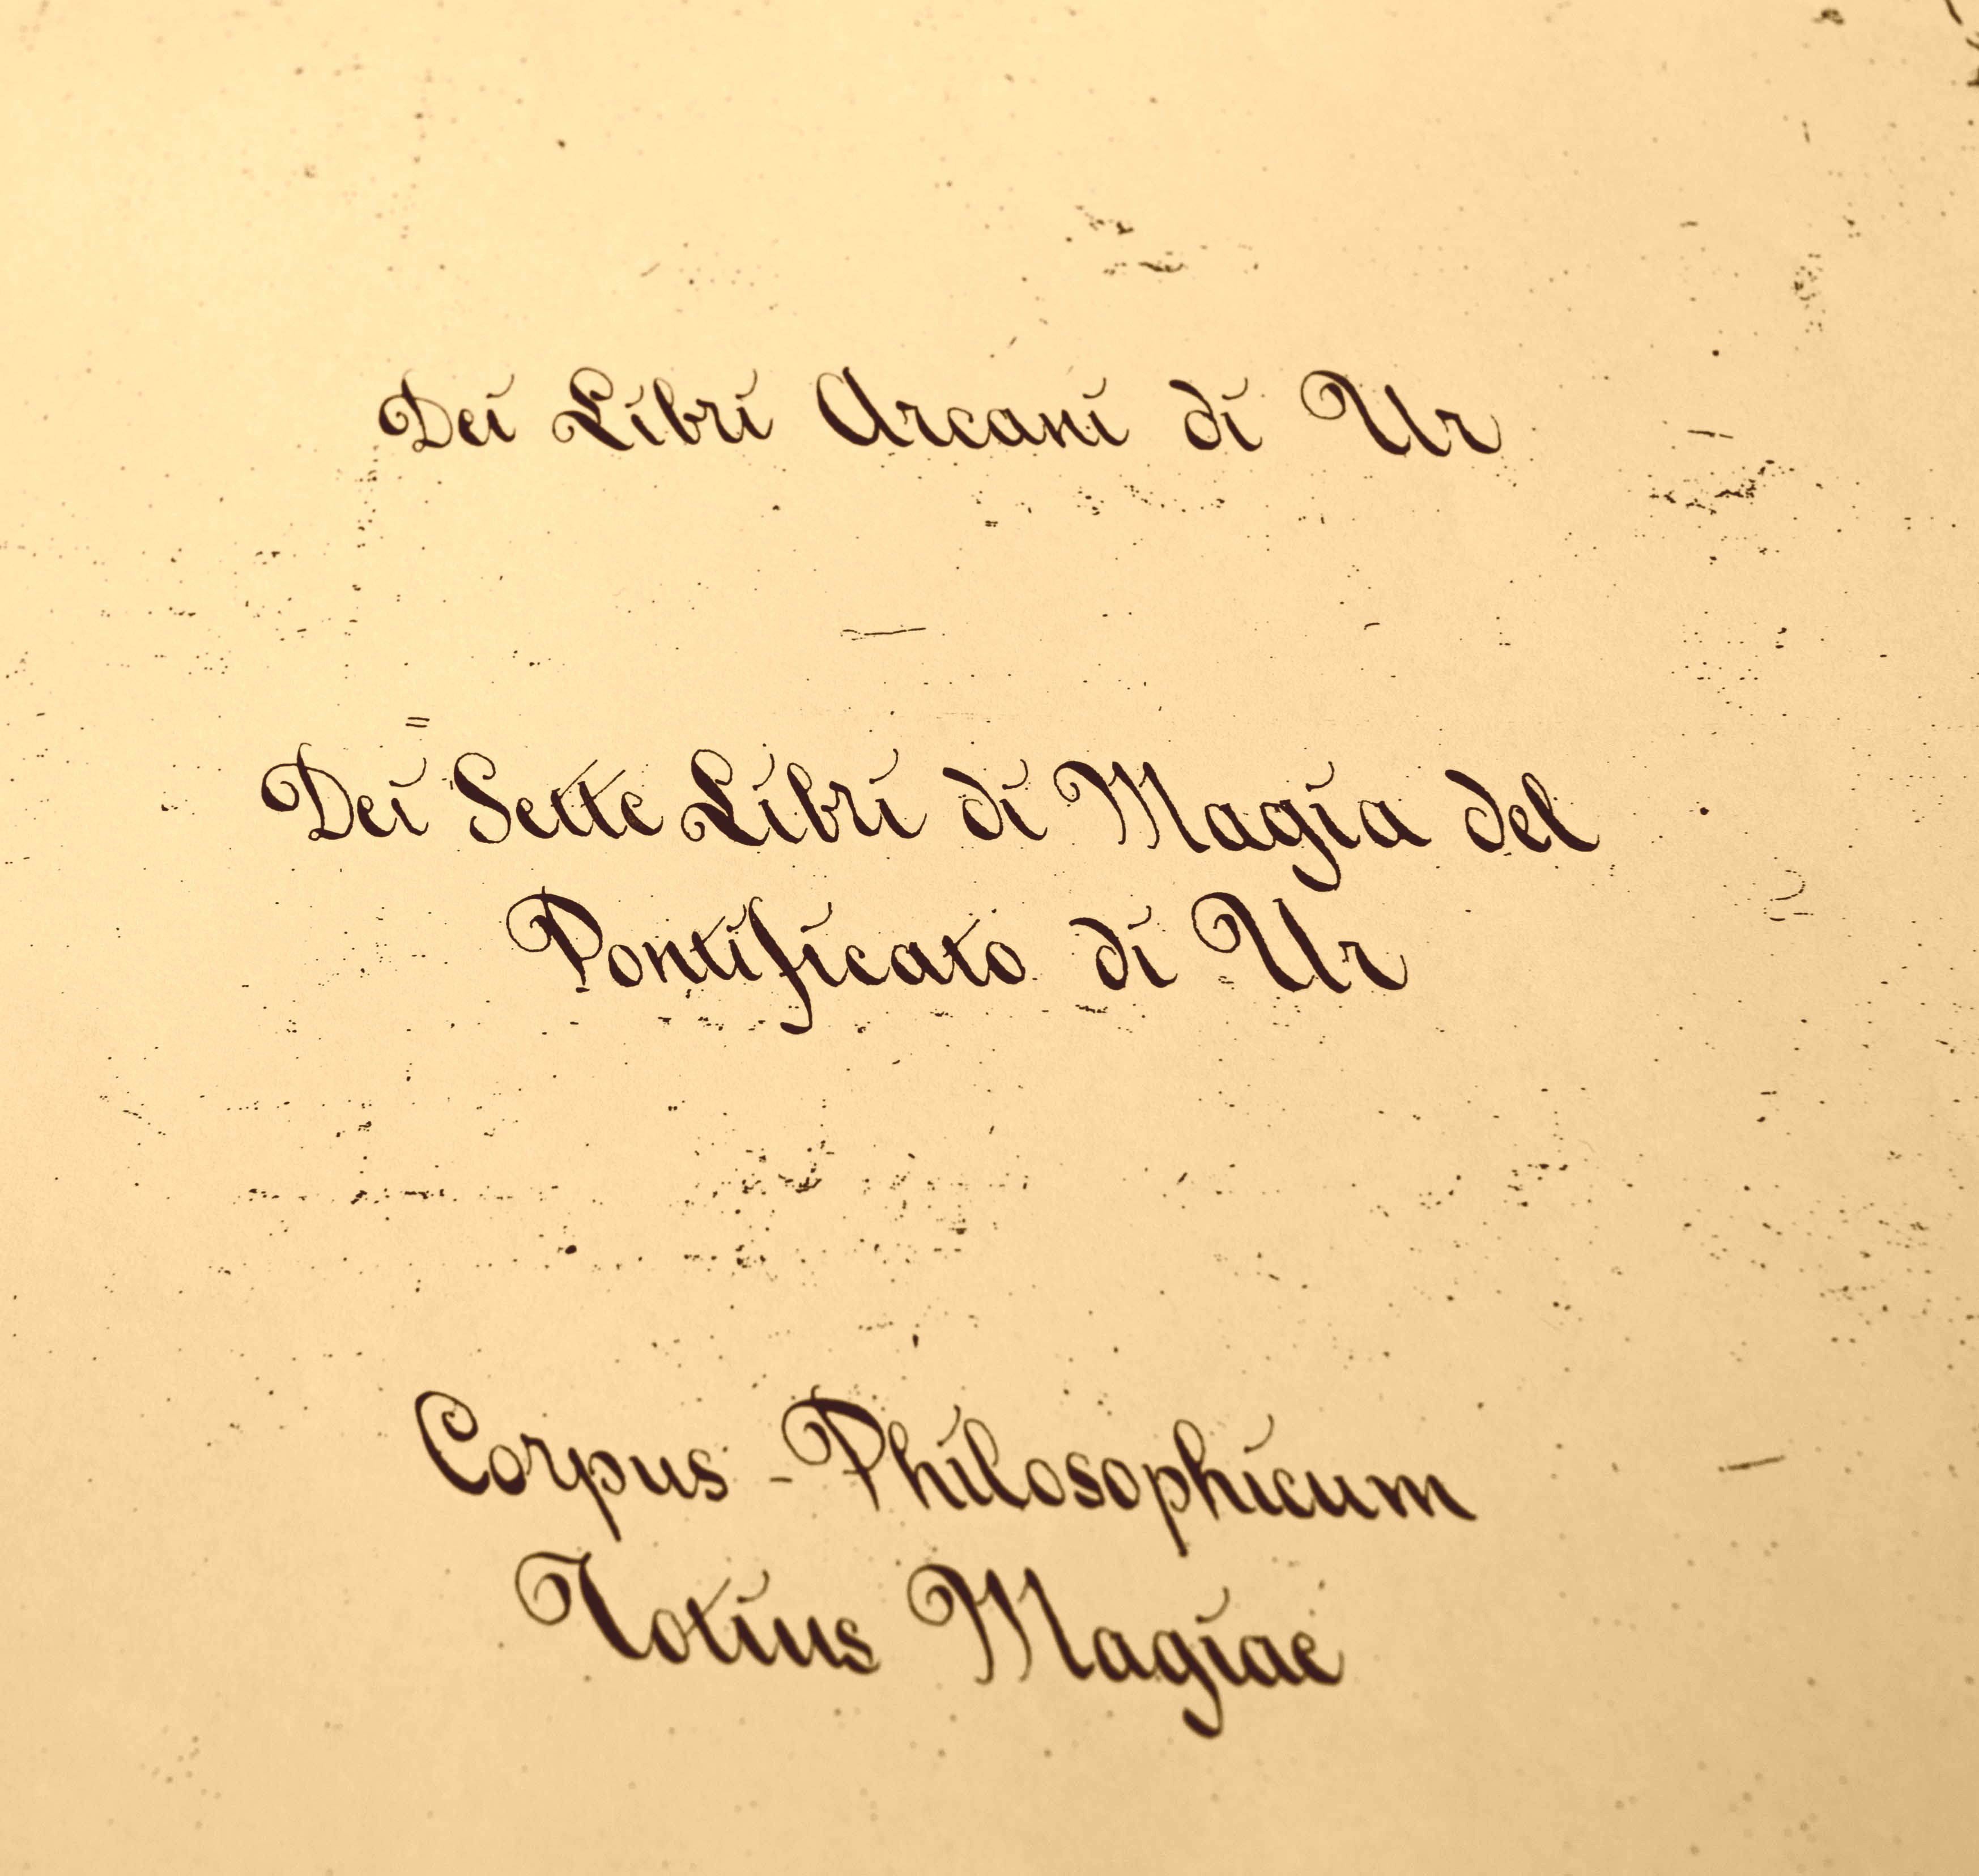 Dei Libri Arcani di Ur
Dei Sette Libri di Magia del
Pontificato di Ur
Corpus - Philosophicum
Totius Magiae